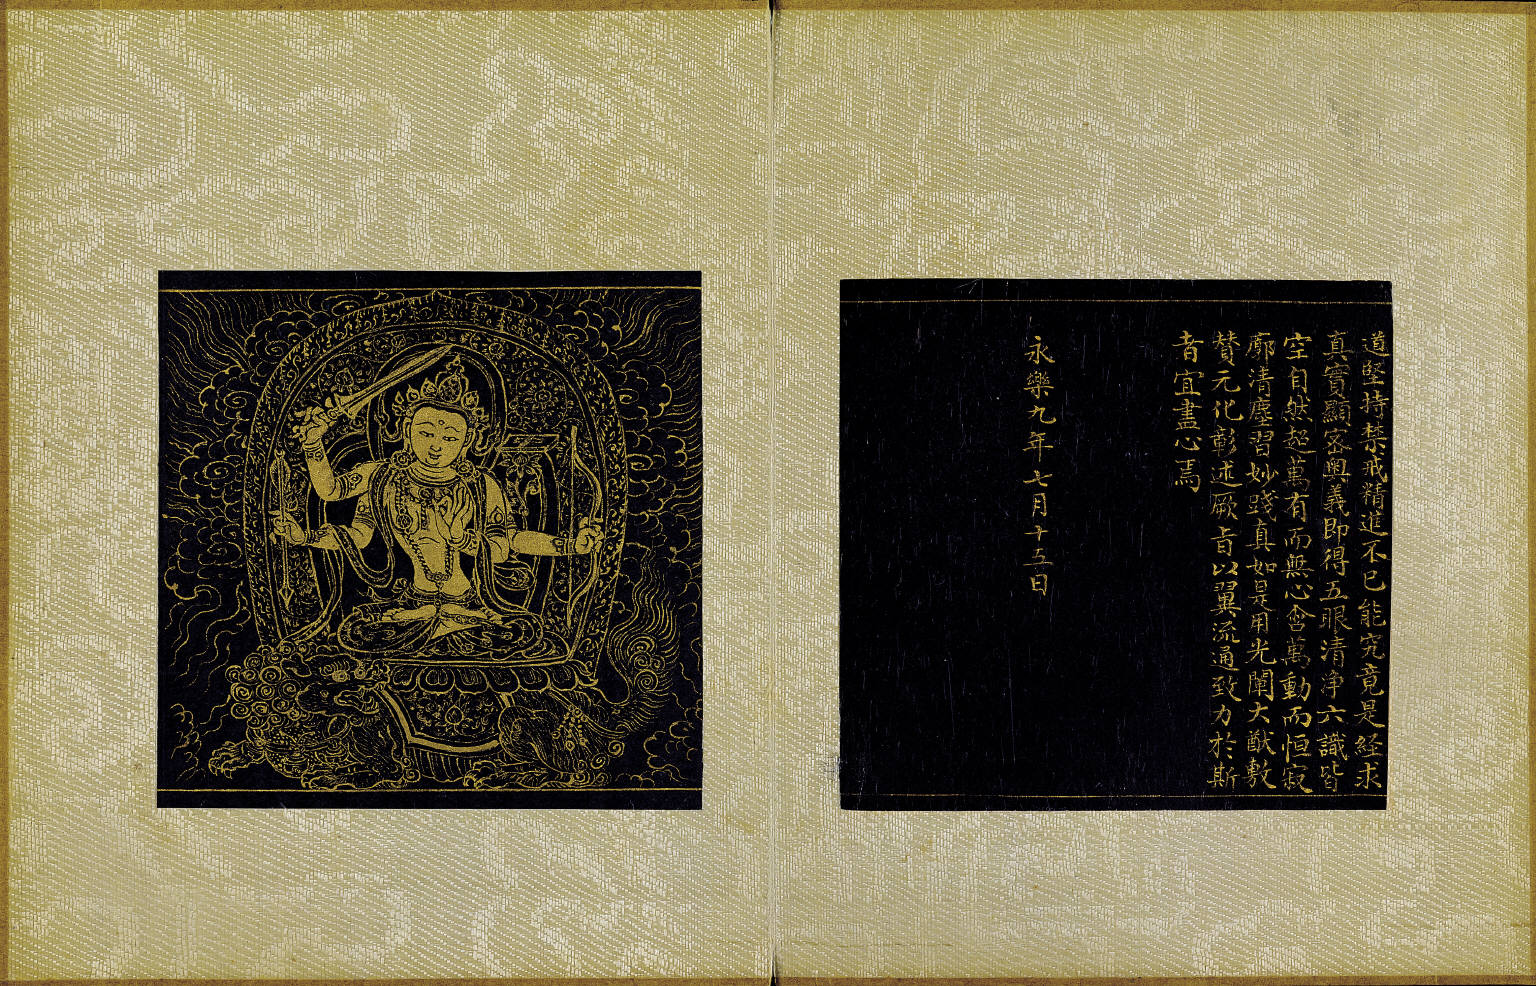 道堅持禁戒精進不已能究竟是經求
真實顯密奧義即得五眼清淨六識皆
空自然超萬有而無心會萬動而恒寂
廓清塵習妙踐真如是用光闡大猷敷
賛元化彰述厥旨以翼流通致力於斯
者宜盡心焉
永樂九年七月十五日